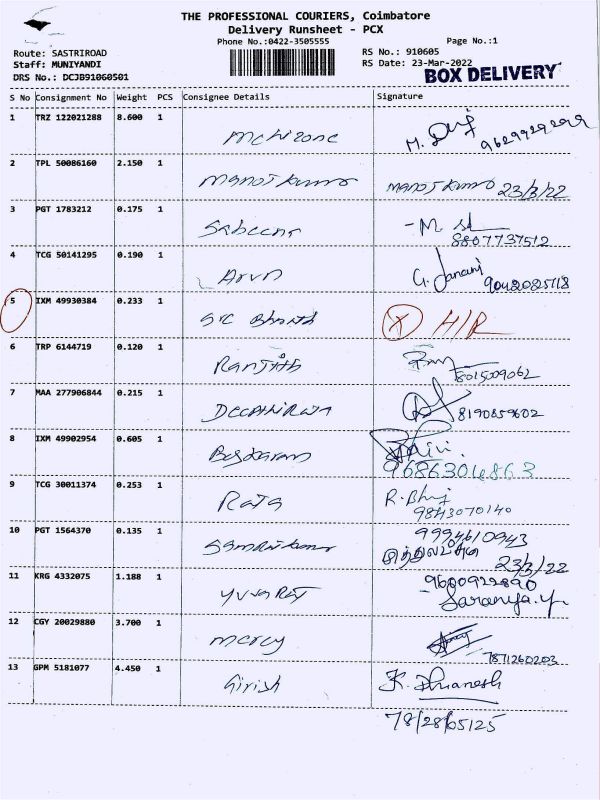 THE PROFESSIONAL COURIERS, Coimbatore
Delivery Runsheet - PCX
Phone No.:0422-3505555
Page No.:1
Route: SASTRIROAD
RS No.: 910605
Staff: MUNIYANDI
RS Date: 23-Mar-2022
DRS No.: DCJB91060501
BOX DELIVERY
S No Consignment No Weight PCS Consignee Details Signature
1 TRZ 122021288 8.600 1
M.
2 TPL 50086160 2.150 1 Manoj kumar Manoj kumar 23/3/22
3 PGT 1783212 0.175 1 Sabeena
8807737512
4 TCG 50141295 0.190 1 Arun G. Janani
9048025118
5 IXM 49930384 0.233 1 H/R
6 TRP 6144719 0.120 1 Ranjith
8015009062
7 MAA 277906844 0.215 1
8190859602
8 IXM 49902954 0.605 1
9686304863
9 TCG 30011374 0.253 1 Raja R.
9843070140
10 PGT 1564370 0.135 1
9994610943
23/3/22
11 KRG 4332075 1.188 1 Yuvaraj
9600922890
Saranya.y
12 CGY 20029880 3.700 1 mercy
7871260203
13 GPM 5181077 4.450 1 Girish K. Dhanesh
78/28/65125